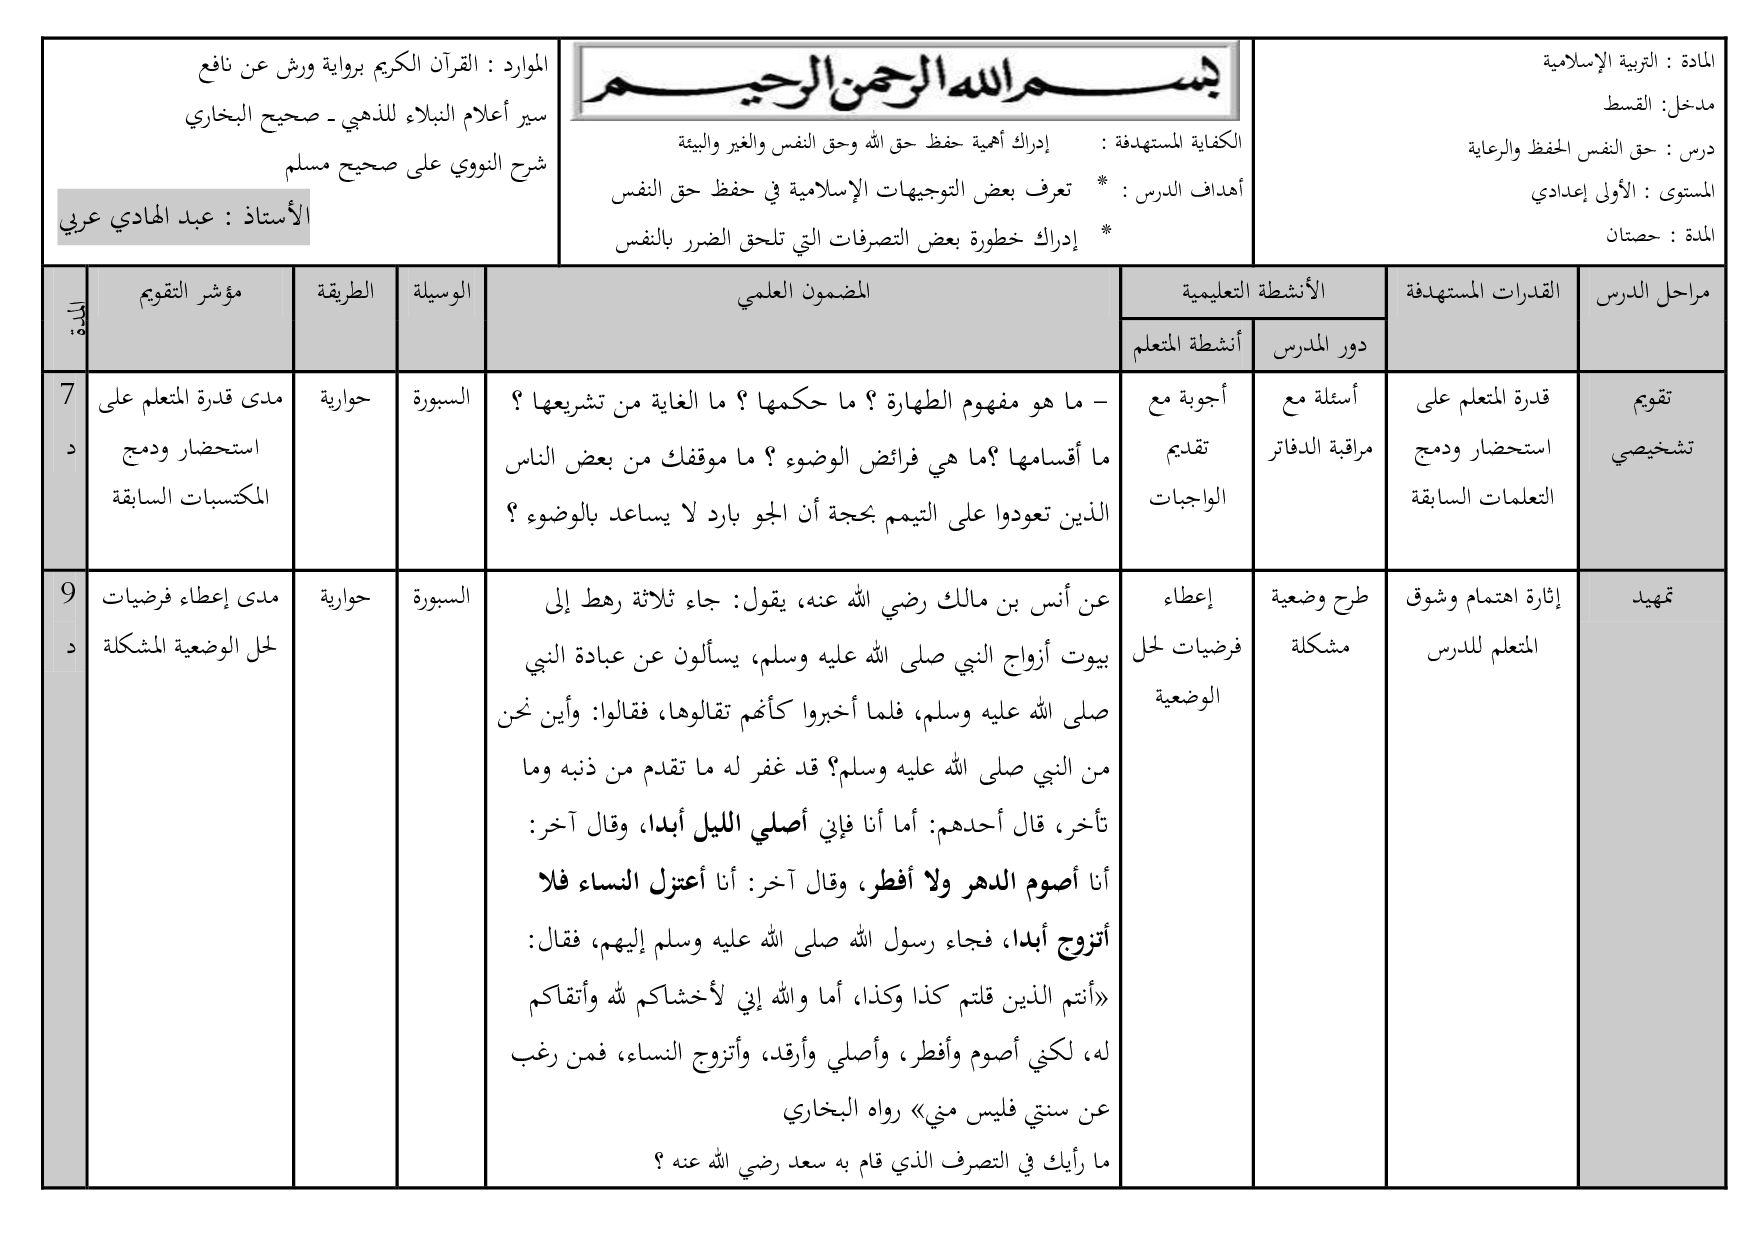 المادة : التربية الإسلامية
مدخل: القسط
درس : حق النفس الحفظ والرعاية
المستوى : الأولى إعدادي
المدة : حصتان
بسم الله الرحمن الرحيم
الكفاية المستهدفة : إدراك أهمية حفظ حق الله وحق النفس والغير والبيئة
أهداف الدرس : * تعرف بعض التوجيهات الإسلامية في حفظ حق النفس
* إدراك خطورة بعض التصرفات التي تلحق الضرر بالنفس
الموارد : القرآن الكريم برواية ورش عن نافع
سير أعلام النبلاء للذهبي ـ صحيح البخاري
شرح النووي على صحيح مسلم
الأستاذ : عبد الهادي عربي
مراحل الدرس
القدرات المستهدفة
الأنشطة التعليمية
دور المدرس
أنشطة المتعلم
المضمون العلمي
الوسيلة
الطريقة
مؤشر التقويم
المدة
تقويم
تشخيصي
قدرة المتعلم على
استحضار ودمج
التعلمات السابقة
أسئلة مع
مراقبة الدفاتر
أجوبة مع
تقديم
الواجبات
– ما هو مفهوم الطهارة ؟ ما حكمها ؟ ما الغاية من تشريعها ؟
ما أقسامها ؟ما هي فرائض الوضوء ؟ ما موقفك من بعض الناس
الذين تعودوا على التيمم بحجة أن الجو بارد لا يساعد بالوضوء ؟
السبورة
حوارية
مدى قدرة المتعلم على
استحضار ودمج
المكتسبات السابقة
7
د
تمهيد
إثارة اهتمام وشوق
المتعلم للدرس
طرح وضعية
مشكلة
إعطاء
فرضيات لحل
الوضعية
عن أنس بن مالك رضي الله عنه، يقول: جاء ثلاثة رهط إلى
بيوت أزواج النبي صلى الله عليه وسلم، يسألون عن عبادة النبي
صلى الله عليه وسلم، فلما أخبروا كأنهم تقالوها، فقالوا: وأين نحن
من النبي صلى الله عليه وسلم؟ قد غفر له ما تقدم من ذنبه وما
تأخر، قال أحدهم: أما أنا فإني أصلي الليل أبدا، وقال آخر:
أنا أصوم الدهر ولا أفطر، وقال آخر: أنا أعتزل النساء فلا
أتزوج أبدا، فجاء رسول الله صلى الله عليه وسلم إليهم، فقال:
«أنتم الذين قلتم كذا وكذا، أما والله إني لأخشاكم لله وأتقاكم
له، لكني أصوم وأفطر، وأصلي وأرقد، وأتزوج النساء، فمن رغب
عن سنتي فليس مني» رواه البخاري
ما رأيك في التصرف الذي قام به سعد رضي الله عنه ؟
السبورة
حوارية
مدى إعطاء فرضيات
لحل الوضعية المشكلة
9
د